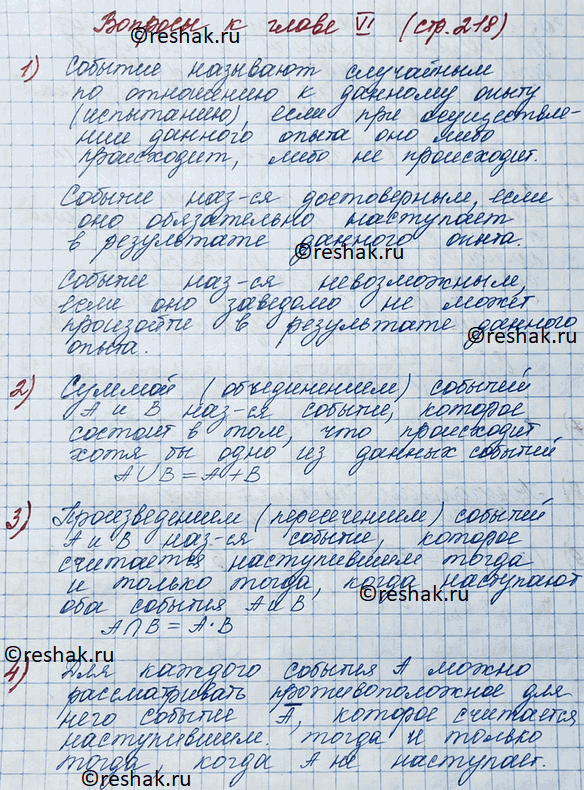 Вопросы к главе VI (стр. 218)
©reshak.ru
1) Событие называют случайным
по отношению к данному опыту
(испытанию), если при осуществле-
нии данного опыта оно либо
происходит, либо не происходит.
Событие наз-ся достоверным, если
оно обязательно наступает
в результате данного опыта.
©reshak.ru
Событие наз-ся невозможным,
если оно заведомо не может
произойти в результате данного
опыта.
©reshak.ru
2) Суммой (объединением) событий
A и B наз-ся событие, которое
состоит в том, что происходит
хотя бы одно из данных событий
A∪B = A+B
3) Произведением (пересечением) событий
A и B наз-ся событие, которое
считается наступившим тогда
и только тогда, когда наступают
оба события A и B
©reshak.ru
A∩B = A·B
©reshak.ru
4) Для каждого события A можно
рассматривать противоположное для
него событие A̅, которое считается
наступившим тогда и только
тогда, когда A не наступает.
©reshak.ru